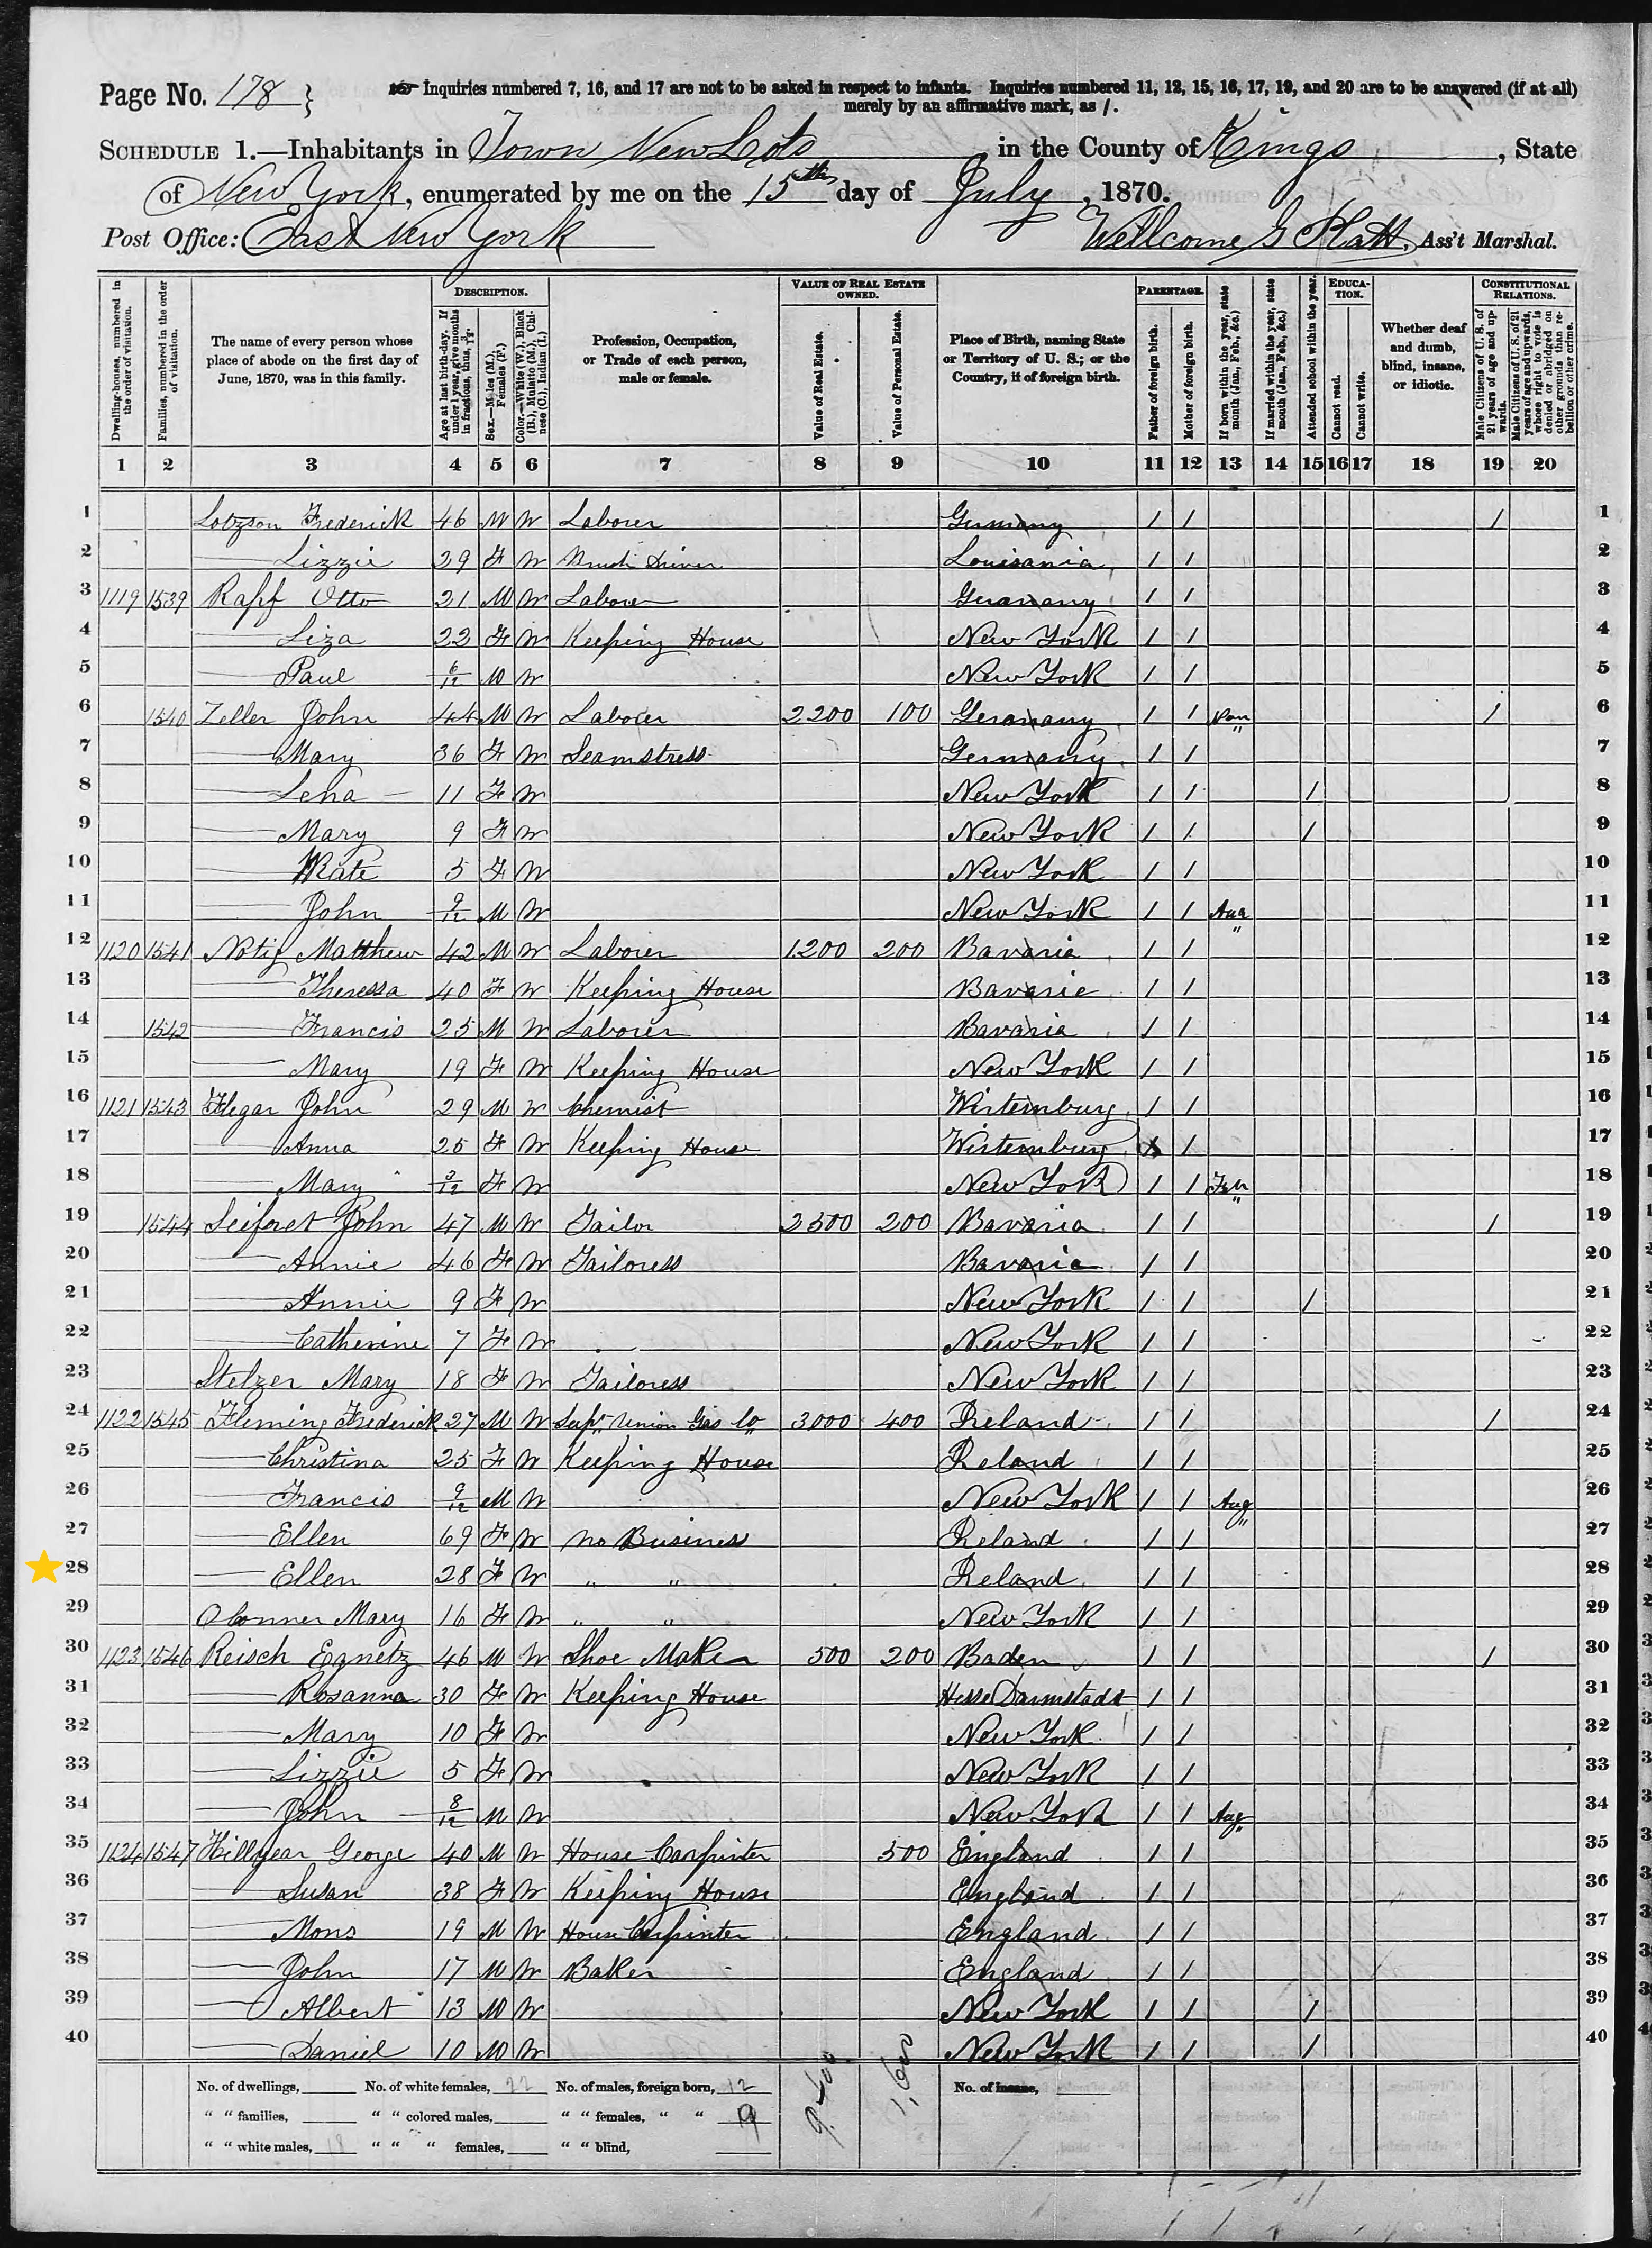 Page No. 178 }
Inquiries numbered 7, 16, and 17 are not to be asked in respect to infants. Inquiries numbered 11, 12, 15, 16, 17, 19, and 20 are to be answered (if at all)
merely by an affirmative mark, as /.
SCHEDULE 1.—Inhabitants in Town New Lots in the County of Kings, State
of New York, enumerated by me on the 15th day of July, 1870.
Post Office: East New York Wellcome G Platt, Ass't Marshal.
Dwelling-houses, numbered in the order of visitation.
Families, numbered in the order of visitation.
The name of every person whose place of abode on the first day of June, 1870, was in this family.
DESCRIPTION.
Age at last birth-day. If under 1 year, give months in fractions, thus, 3/12.
Sex.—Males (M.), Females (F.)
Color.—White (W.), Black (B.), Mulatto (M.), Chinese (C.), Indian (I.)
Profession, Occupation, or Trade of each person, male or female.
VALUE OF REAL ESTATE OWNED.
Value of Real Estate.
Value of Personal Estate.
Place of Birth, naming State or Territory of U. S.; or the Country, if of foreign birth.
PARENTAGE.
Father of foreign birth.
Mother of foreign birth.
If born within the year, state month (Jan., Feb., &c.)
If married within the year, state month (Jan., Feb., &c.)
Attended school within the year.
EDUCATION.
Cannot read.
Cannot write.
Whether deaf and dumb, blind, insane, or idiotic.
CONSTITUTIONAL RELATIONS.
Male Citizens of U. S. of 21 years of age and upwards.
Male Citizens of U. S. of 21 years of age and upwards, whose right to vote is denied or abridged on other grounds than rebellion or other crime.
1 2 3 4 5 6 7 8 9 10 11 12 13 14 15 16 17 18 19 20
1 Lotzson Frederick 46 M W Laborer Germany / / / 1
2 — Lizzie 29 F W Louisania / / 2
3 1119 1539 Rapf Otto 21 M W Laborer Germany / / 3
4 — Liza 22 F W Keeping House New York / / 4
5 — Paul 6/12 M W New York / / 5
6 1540 Zeller John 44 M W Laborer 2200 100 Germany / / / 6
7 — Mary 36 F W Seamstress Germany / / 7
8 — Lena 11 F W New York / / / 8
9 — Mary 9 F W New York / / / 9
10 — Kate 5 F W New York / / 10
11 — John 9/12 M W New York / / Aug 11
12 1120 1541 Notig Matthew 42 M W Laborer 1200 200 Bavaria / / 12
13 — Theressa 40 F W Keeping House Bavarie / / 13
14 1542 — Francis 25 M W Laborer Bavaria / / 14
15 — Mary 19 F W Keeping House New York / / 15
16 1121 1543 Flegar John 29 M W Chemist Wirtemburg / / 16
17 — Anna 25 F W Keeping House Wirtemburg / / 17
18 — Mary 3/12 F W New York / / Feb 18
19 1544 Seiferet John 47 M W Tailor 2500 200 Bavaria / / / 19
20 — Annie 46 F W Tailoress Bavaria / / 20
21 — Annie 9 F W New York / / / 21
22 — Catherine 7 F W New York / / 22
23 Stelzer Mary 18 F W Tailoress New York / / 23
24 1122 1545 Fleming Frederick 27 M W Supt Union Gas Co 3000 400 Ireland / / / 24
25 — Christina 25 F W Keeping House Ireland / / 25
26 — Francis 9/12 M W New York / / Aug 26
27 — Ellen 69 F W no Business Ireland / / 27
28 — Ellen 28 F W " " Ireland / / 28
29 O Conner Mary 16 F W " " New York / / 29
30 1123 1546 Reisch Egnetz 46 M W Shoe Maker 500 200 Baden / / / 30
31 — Rosanna 30 F W Keeping House Hesse Darmstadt / / 31
32 — Mary 10 F W New York / / 32
33 — Lizzie 5 F W New York / / 33
34 — John 8/12 M W New York / / Aug 34
35 1124 1547 Hillyear George 40 M W House Carpinter 500 England / / 35
36 — Susan 38 F W Keeping House England / / 36
37 — Mons 19 M W House Carpinter England / / 37
38 — John 17 M W Baker England / / 38
39 — Albert 13 M W New York / / / 39
40 — Daniel 10 M W New York / / / 40
No. of dwellings, No. of white females, 22 No. of males, foreign born, 12 9.400 1,600 No. of insane,
" " families, " " colored males, " " females, " " 9
" " white males, 18 " " " females, " " blind,